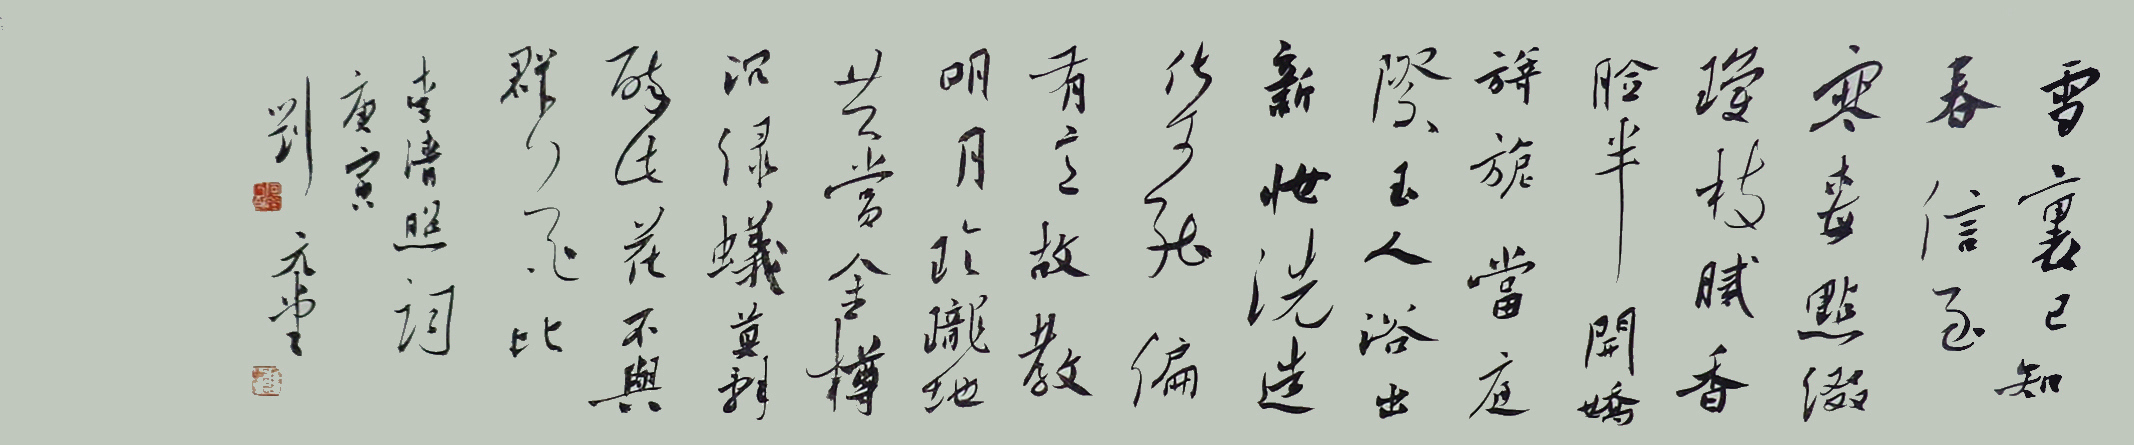 雪裏已知
春信至
寒梅點綴
瓊枝膩香
臉半開嬌
旖旎當庭
際玉人浴出
新妝洗造
化可能偏
有意故教
明月玲瓏地
共賞金樽
沉緑蟻莫辭
醉此花不與
群花比
李清照詞
庚寅
劉元堂